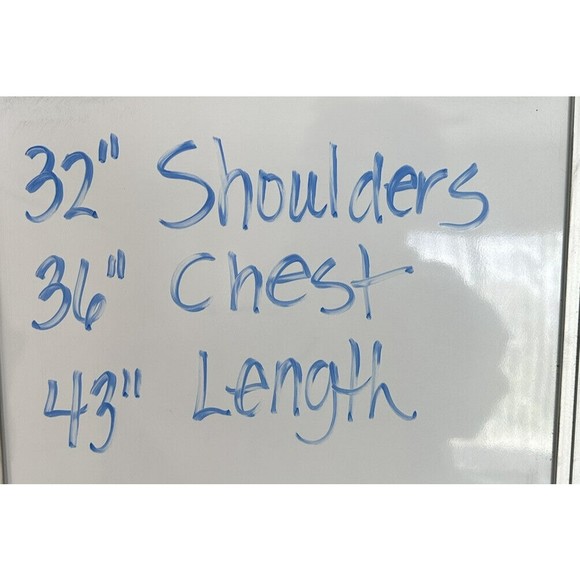 32" Shoulders
36" Chest
43" Length